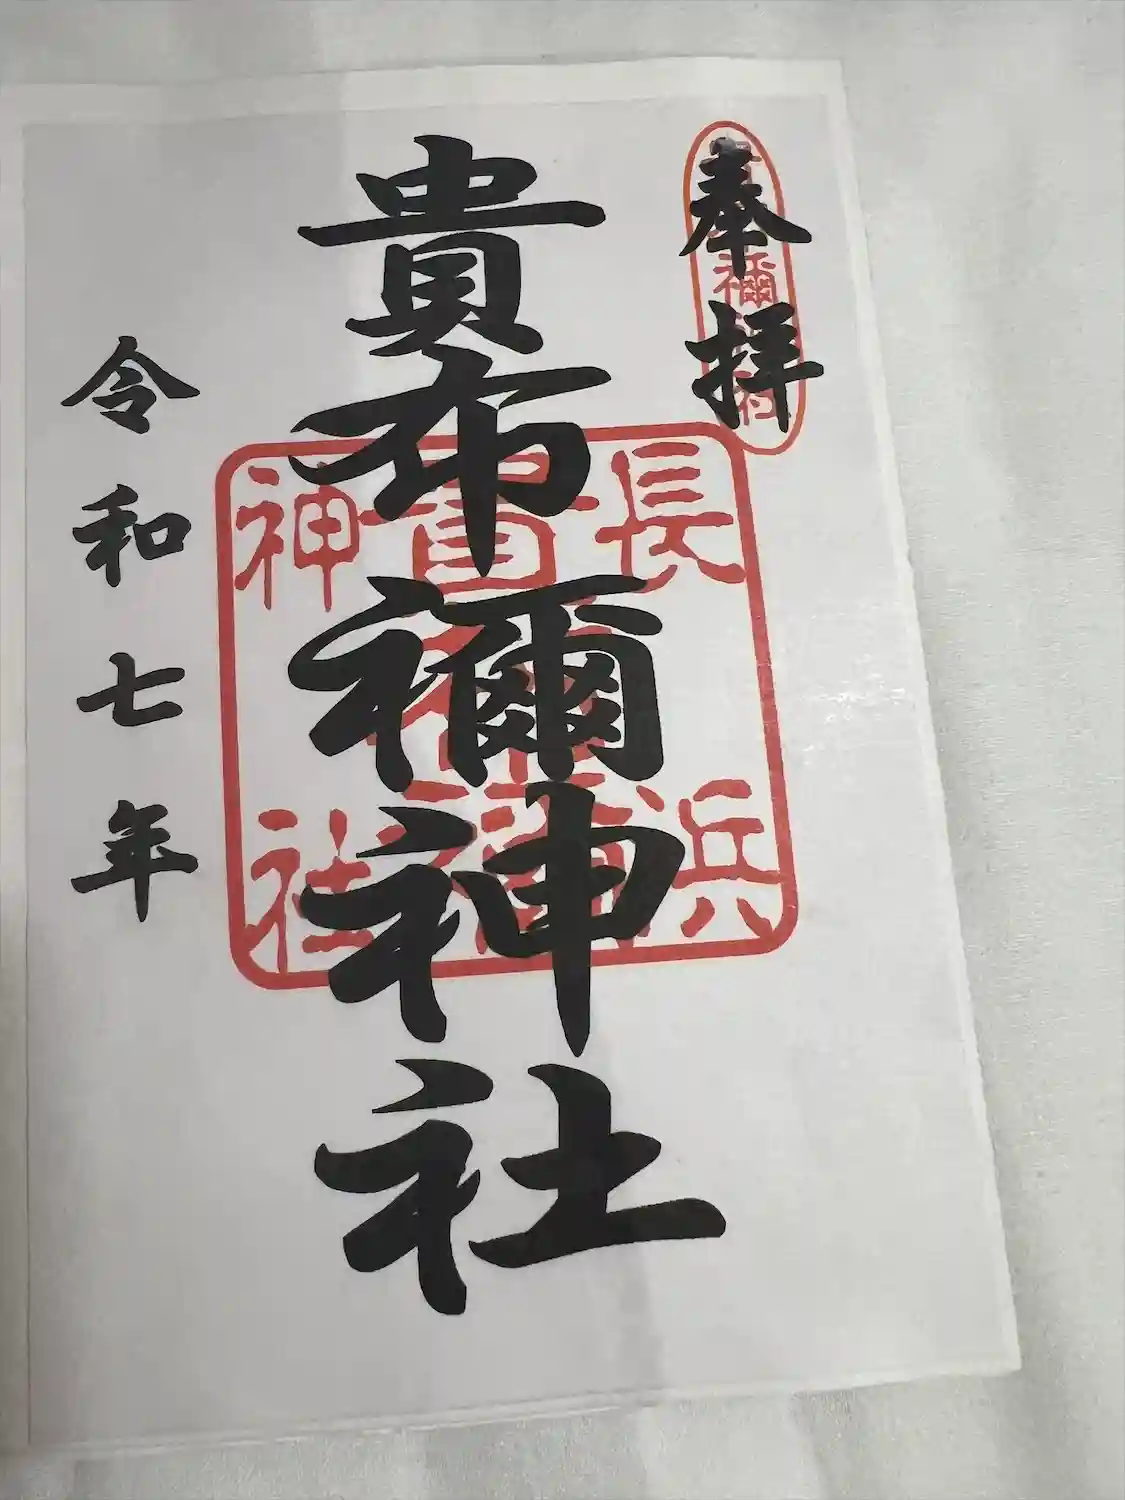 奉拝
貴布禰神社
令和七年
長浜
貴布禰
神社